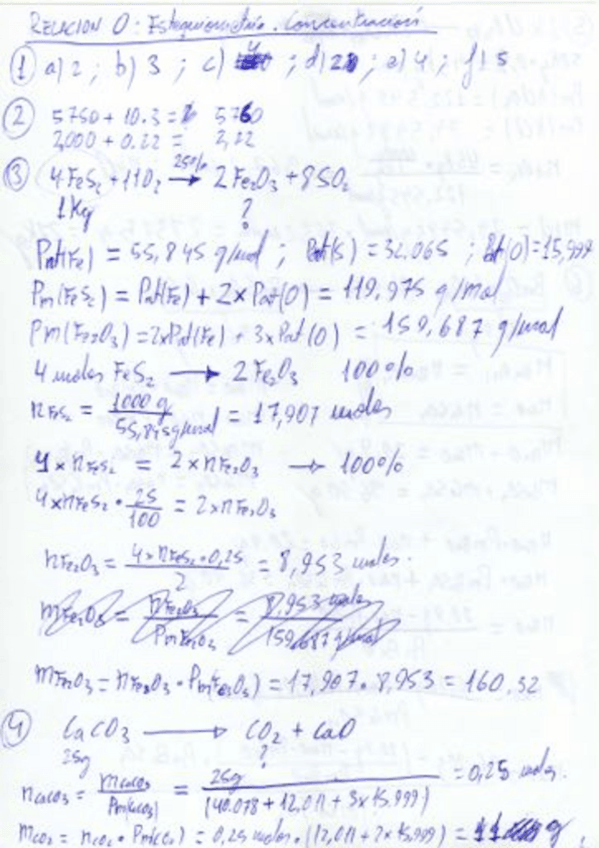 RELACION 0: Estequiometría. Concentración
① a) 2 ; b) 3 ; c) ; d) 2 ; e) 4 ; f) 5
② 5750 + 10.3 = 5760
2,000 + 0.22 = 2,22
③ 4FeS₂ + 11O₂ 25% → 2Fe₂O₃ + 8SO₂
1Kg ?
Pat(Fe) = 55,845 g/mol ; Pat(S) = 32.065 ; Pat(O) = 15,999
Pm(FeS₂) = Pat(Fe) + 2×Pat(O) = 119,975 g/mol
Pm(Fe₂O₃) = 2×Pat(Fe) + 3×Pat(O) = 159,687 g/mol
4 moles FeS₂ → 2 Fe₂O₃ 100%
nFeS₂ = 1000 g / 55,845g/mol = 17,907 moles
4×nFeS₂ = 2×nFe₂O₃ → 100%
4×nFeS₂ · 25/100 = 2×nFe₂O₃
nFe₂O₃ = 4×nFeS₂·0,25 / 2 = 8,953 moles.
mFe₂O₃ = nFe₂O₃ / PmFe₂O₃ = 8,953 moles / 159,687 g/mol
mFe₂O₃ = nFe₂O₃ · Pm(Fe₂O₃) = 17,907 · 8,953 = 160.32
④ CaCO₃ → CO₂ + CaO
25g ?
nCaCO₃ = mCaCO₃ / Pm(CaCO₃) = 25g / (40.078 + 12,011 + 3×15.999) = 0,25 moles.
mCO₂ = nCO₂ · Pm(CO₂) = 0,25 moles · (12,011 + 2×15,999) = 11 g.